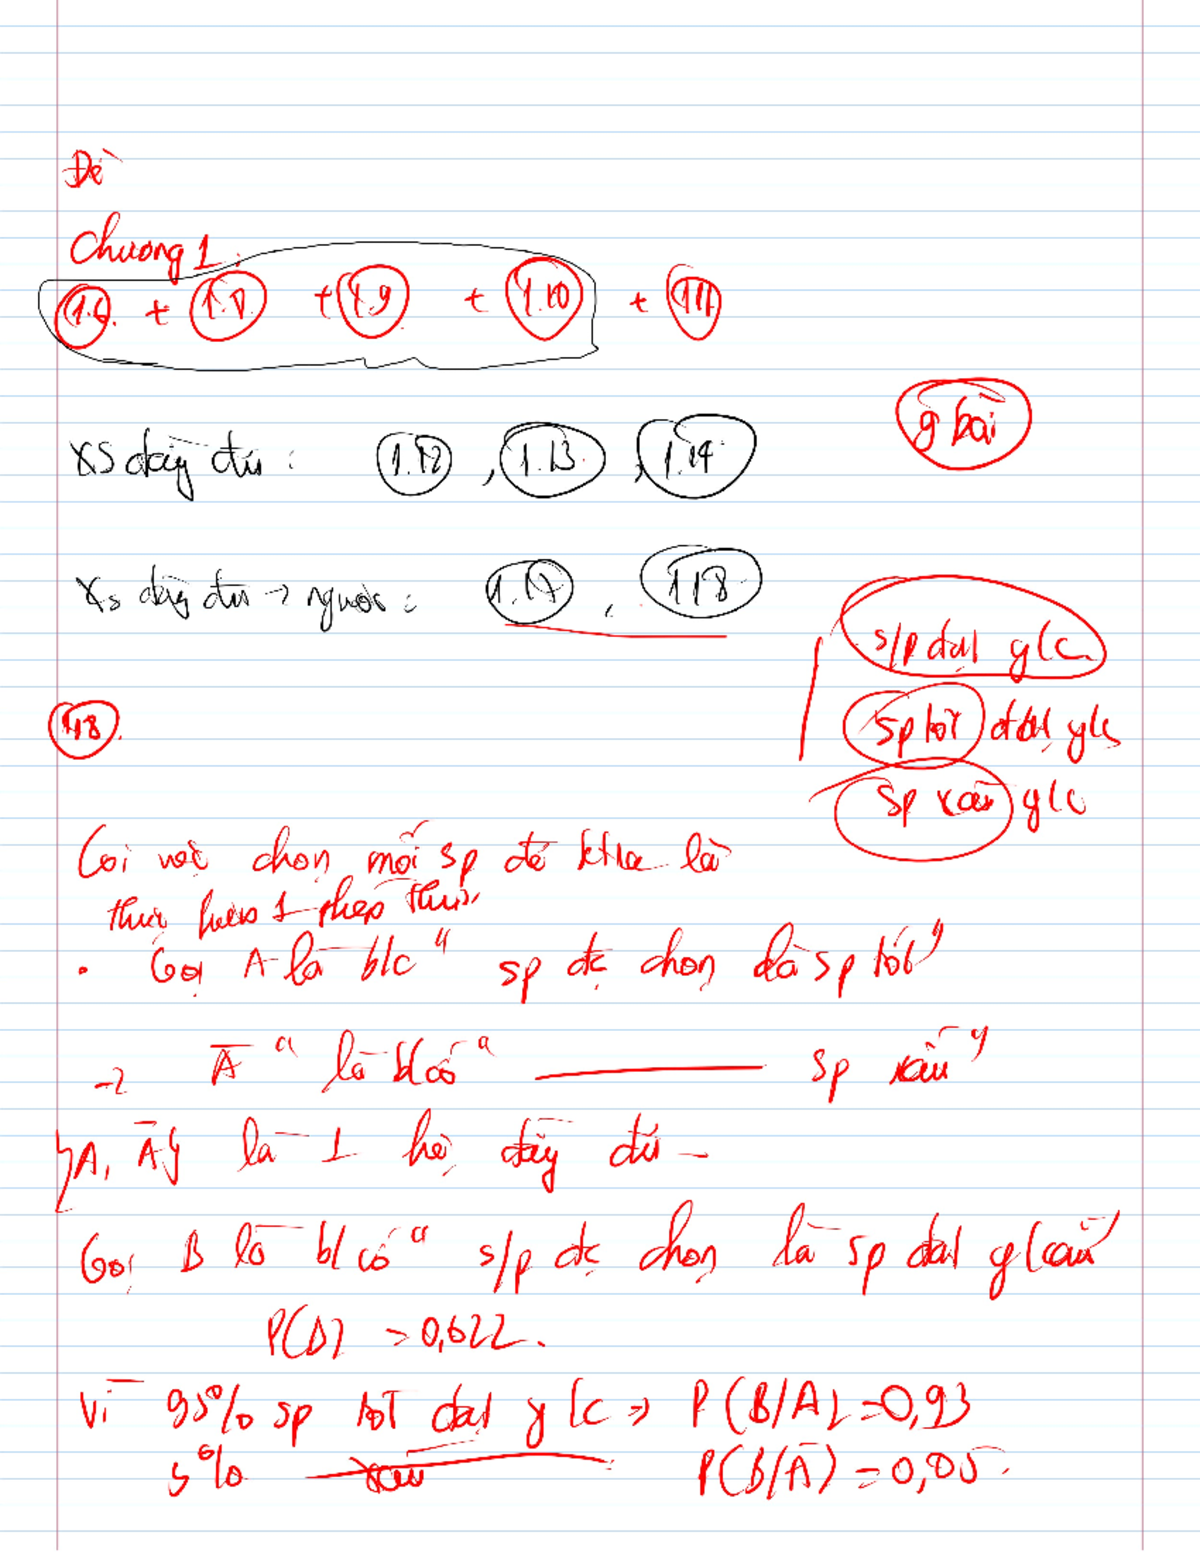 Đề
Chương 1:
1.6 + 1.8 + 1.9 + 1.10 + 1.11
9 bài
XS đầy đủ: 1.12, 1.13, 1.14
Xs đầy đủ → ngược: 1.17, 1.18
s/p đạt y/c
sp tốt đạt y/c
sp xấu y/c
1.18.
Coi việc chọn mỗi sp để ktra là
thực hiện 1 phép thử.
• Gọi A là b/c "sp đc chọn là sp tốt"
→ Ā là b/cố " ——— sp xấu"
{A, Ā} là 1 hệ đầy đủ -
Gọi B là b/cố "s/p đc chọn là sp đạt y/cầu"
P(B) = 0,622.
Vì 95% sp tốt đạt y/c → P(B/A) = 0,93
5% xấu P(B/Ā) = 0,05.